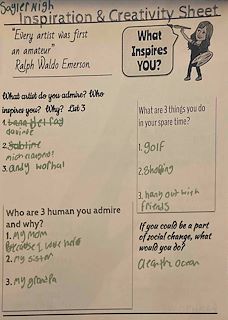 Sayler High
Inspiration & Creativity Sheet
"Every artist was first
an amateur"
Ralph Waldo Emerson
What
Inspires
YOU?
What artist do you admire? Who
inspires you? Why? List 3
1.
davinde
2.
michelangelo!
3. andy worhal
What are 3 things you do
in your spare time?
1. golf
2. Shopping
3. hang out with
friends
Who are 3 human you admire
and why?
1. my mom
Because I love her
2. my sister
3. my grandpa
If you could be a part
of social change, what
would you do?
clean the ocean